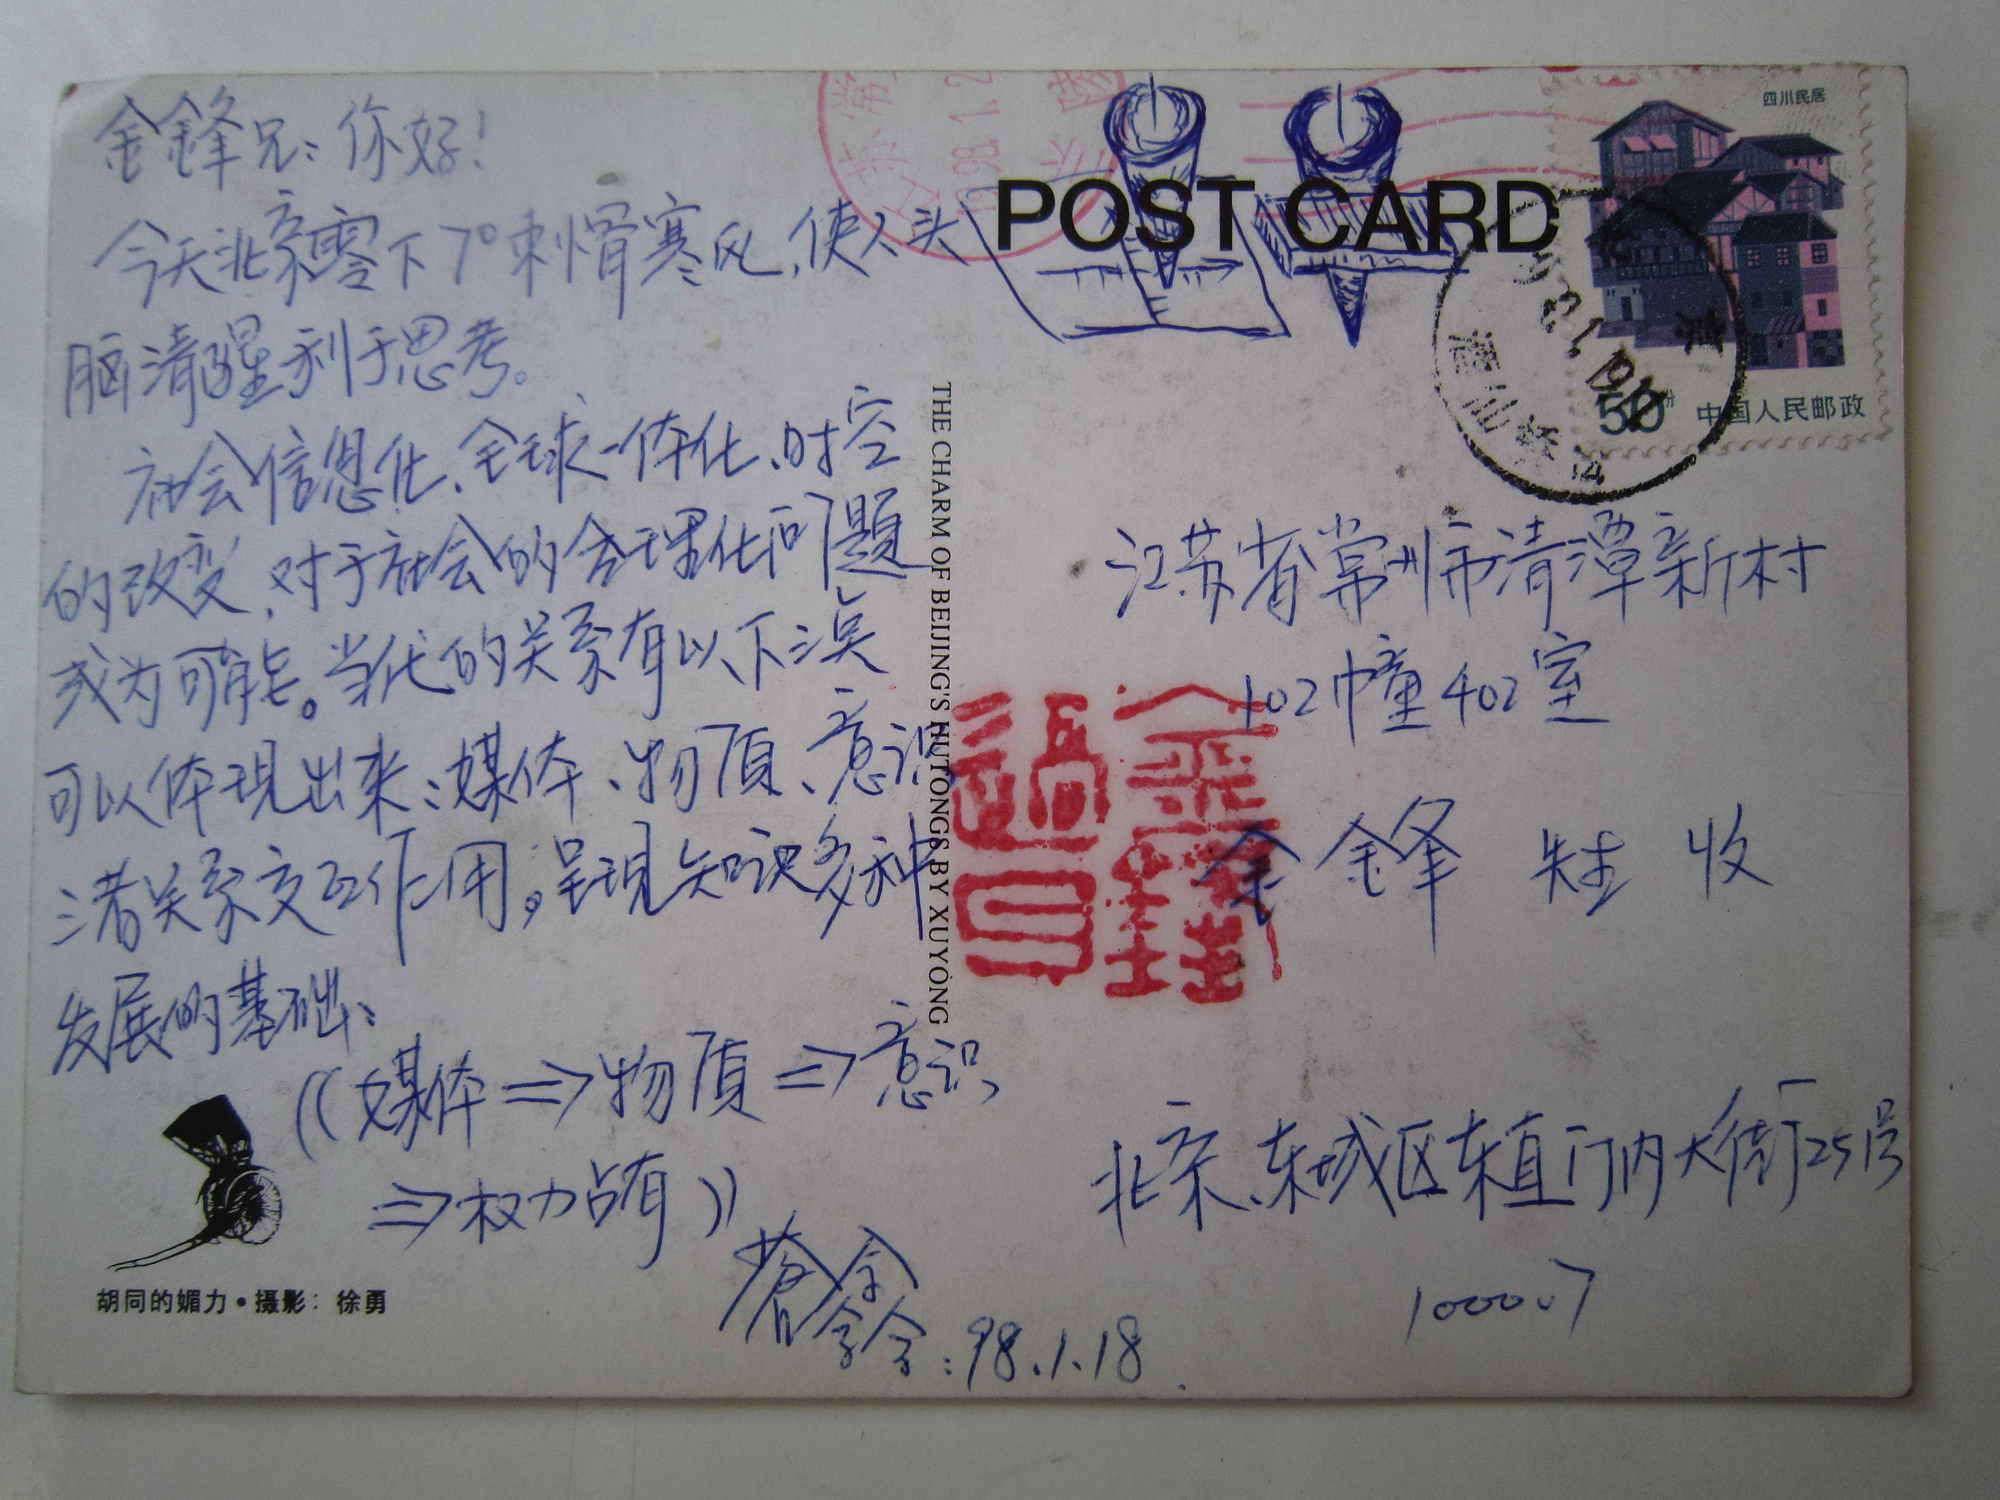 金鋒兄：你好！
今天北京零下7°刺骨寒风,使人头
脑清醒利于思考。
社会信息化、全球一体化、时空
的改变,对于社会的合理化问题
成为可能。当代的关系有以下三点
可以体現出来：媒体、物质、意识
三者关系交互作用。呈現知识多种
发展的基础：
((媒体⇒物质⇒意识
⇒权力占有))
蒼鑫：98.1.18.
胡同的媚力•摄影：徐勇
POST CARD
THE CHARM OF BEIJING'S HUTONGS BY XUYONG
四川民居
50分
中国人民邮政
江苏省常州市清潭新村
102幢402室
金鋒 收
北京、东城区东直门内大街25号
100007